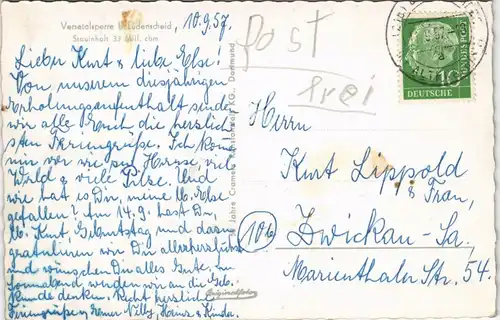 Versetalsperre b. Lüdenscheid
Stauinhalt 33 Mill. cbm
10.9.57.
Lieber Kurt & liebe Else!
Von unserem diesjährigen
Erholungsaufenthalt sende
wir alle Euch die herzlich-
sten Feriengrüße. Ich kom
nur vor wie zu Hause, viel
Wald & viele Pilze. Und
wie hat es Dir, meine lb. Else
gefallen? Am 14.9. hast Du,
lb. Kurt Geburtstag und dazu
gratulieren wir Dir allerherzlichst
und wünschen Dir alles Gute, am
Sonnabend werden wir an die Geb.
denken. Recht herzliche
Feriengrüße Willy, & Kinder.
Jahre Cramers Kunstanstalt KG., Dortmund
Post
frei
DEUTSCHE
BUNDESPOST
10
Herrn
Kurt Lippold
& Frau,
(10b)
Zwickau-Sa.
Marienthaler Str. 54.